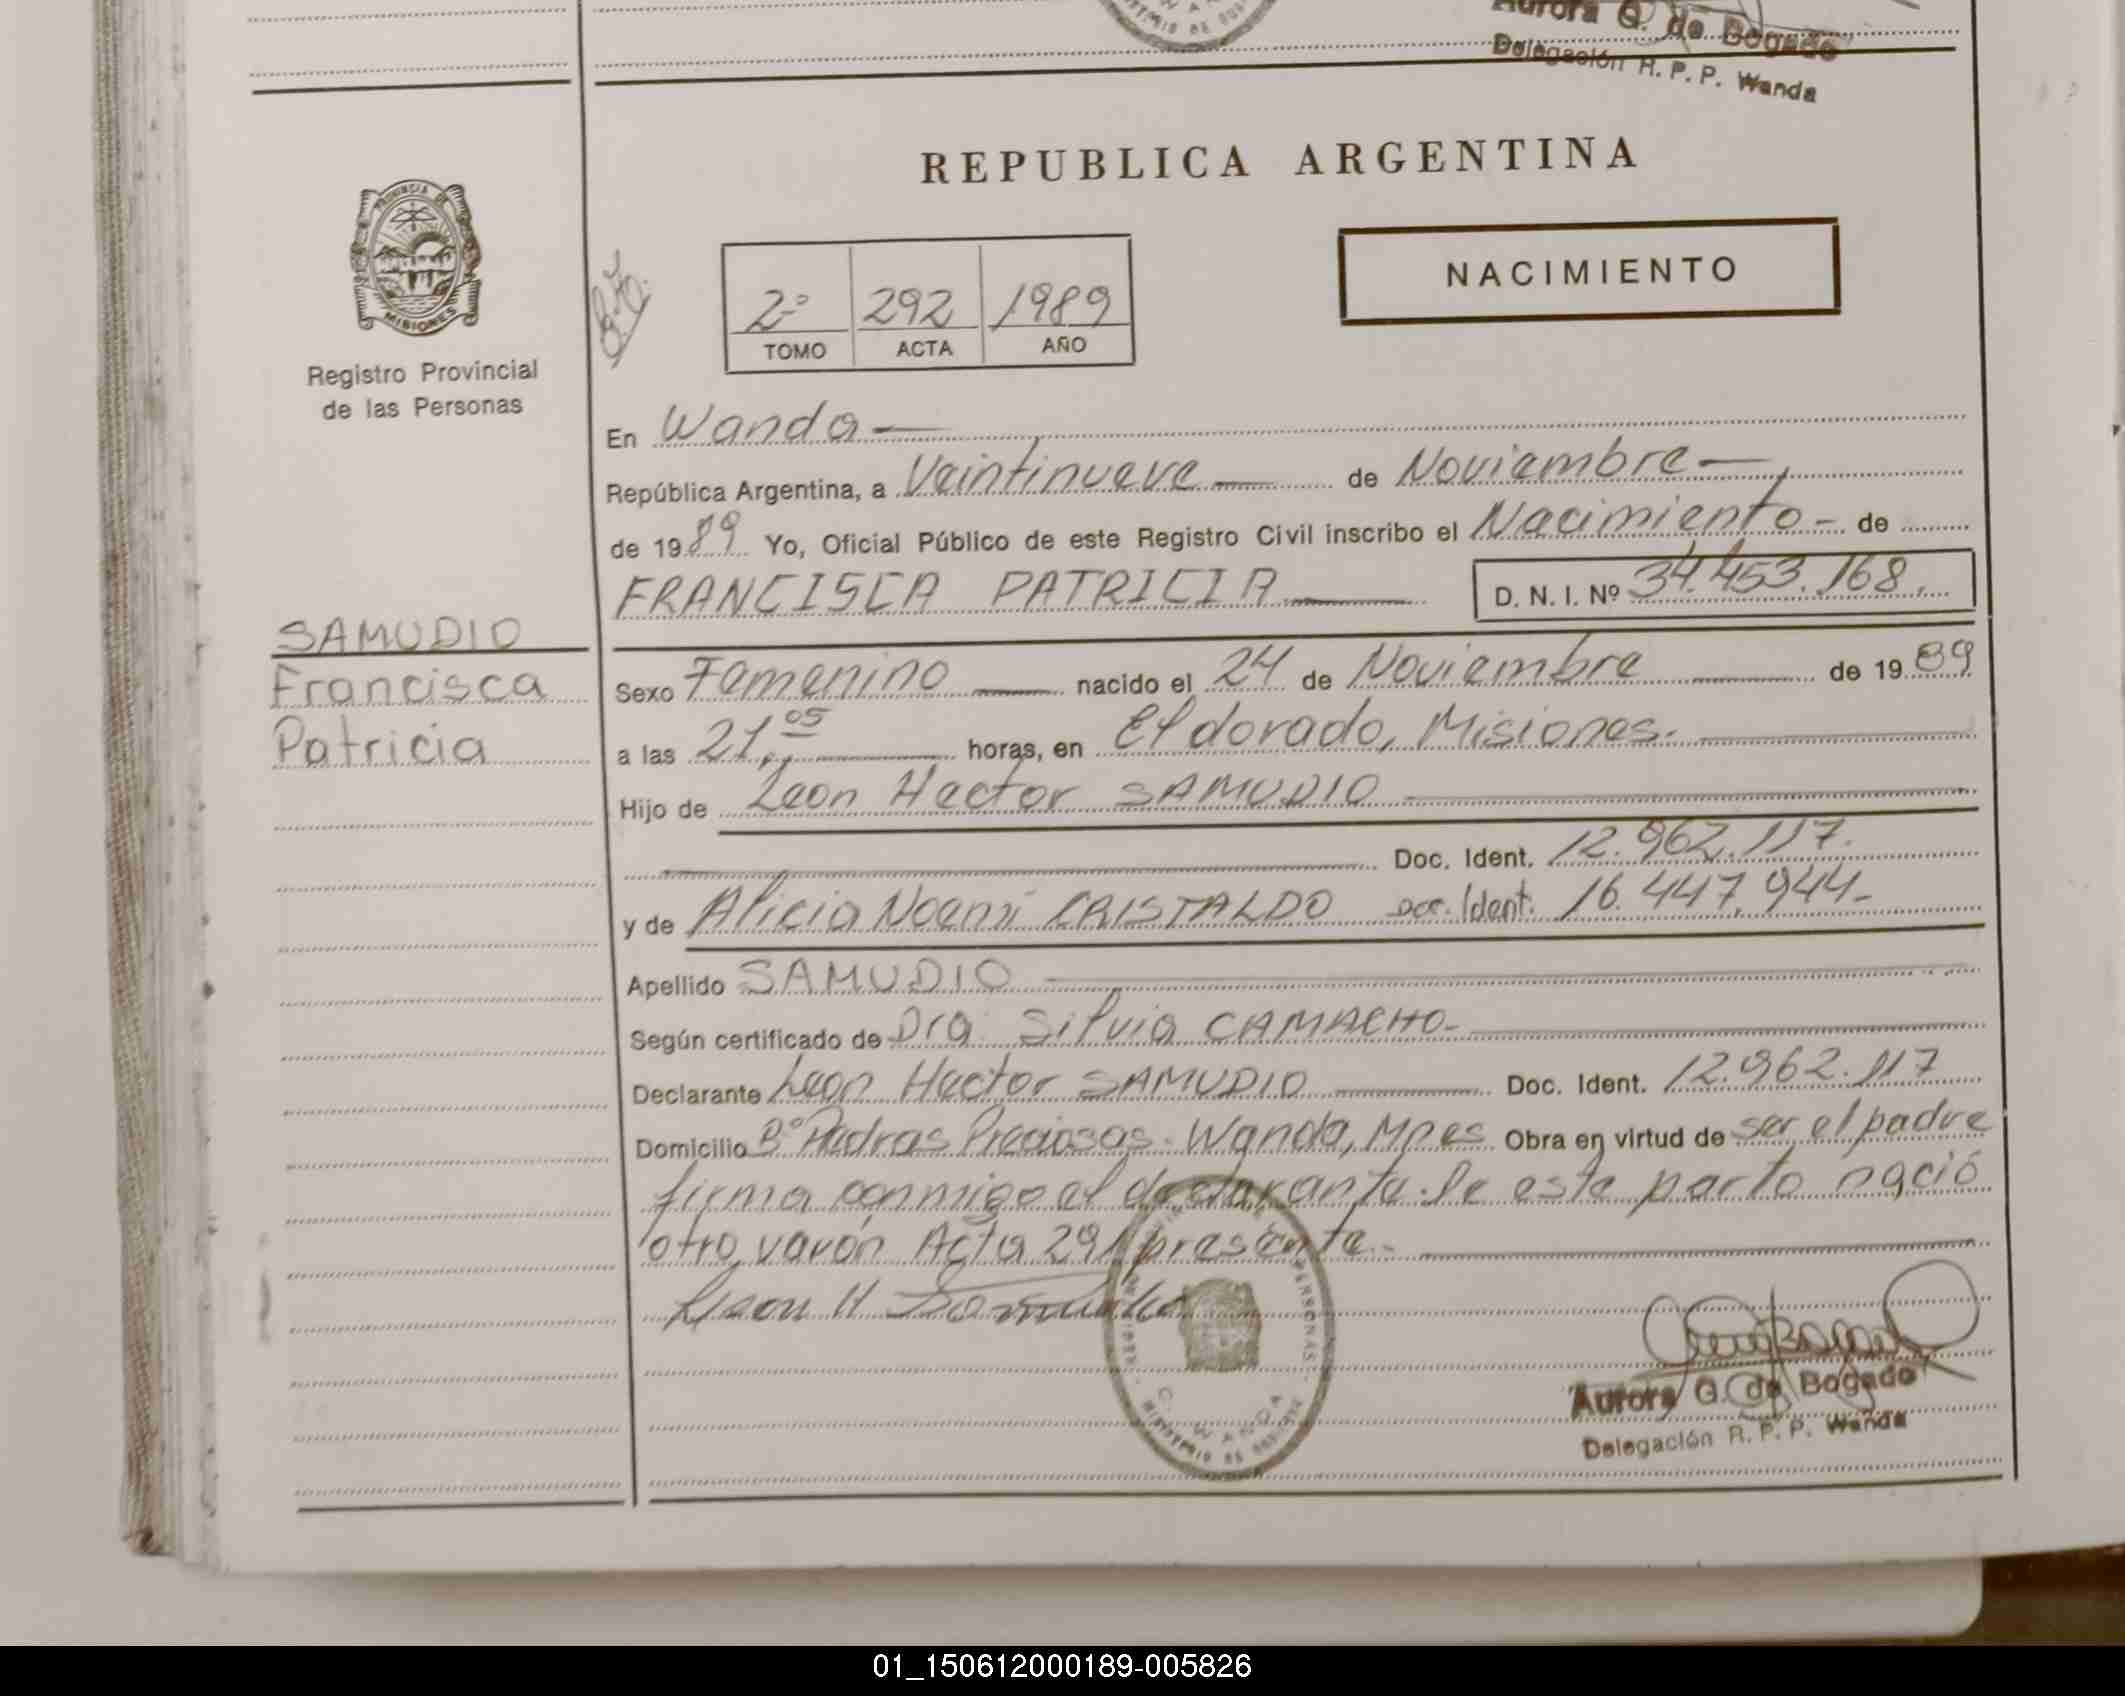 Aurora G. de Bogado
Delegación R. P. P. Wanda
REPUBLICA ARGENTINA
PROVINCIA DE
MISIONES
Registro Provincial
de las Personas
NACIMIENTO
2º 292 1989
TOMO ACTA AÑO
En Wanda
República Argentina, a Veintinueve de Noviembre
de 1989 Yo, Oficial Público de este Registro Civil inscribo el Nacimiento - de
FRANCISCA PATRICIA D. N. I. Nº 34.453.168.
SAMUDIO
Francisca
Patricia
Sexo Femenino nacido el 24 de Noviembre de 1989
a las 21,05 horas, en Eldorado, Misiones.
Hijo de Leon Hector SAMUDIO
Doc. Ident. 12.962.117.
y de Alicia Noemi CRISTALDO Doc. Ident. 16.447.944-
Apellido SAMUDIO
Según certificado de Dra. Silvia CAMACHO-
Declarante Leon Hector SAMUDIO Doc. Ident. 12.962.117
Domicilio Bº Piedras Preciosas. Wanda, Mnes Obra en virtud de ser el padre
firma conmigo el declarante. De este parto nació
otro varón Acta 291 presente.-
Leon H Samudio
PERSONAS
WANDA
Aurora G. de Bogado
Delegación R. P. P. Wanda
01_150612000189-005826